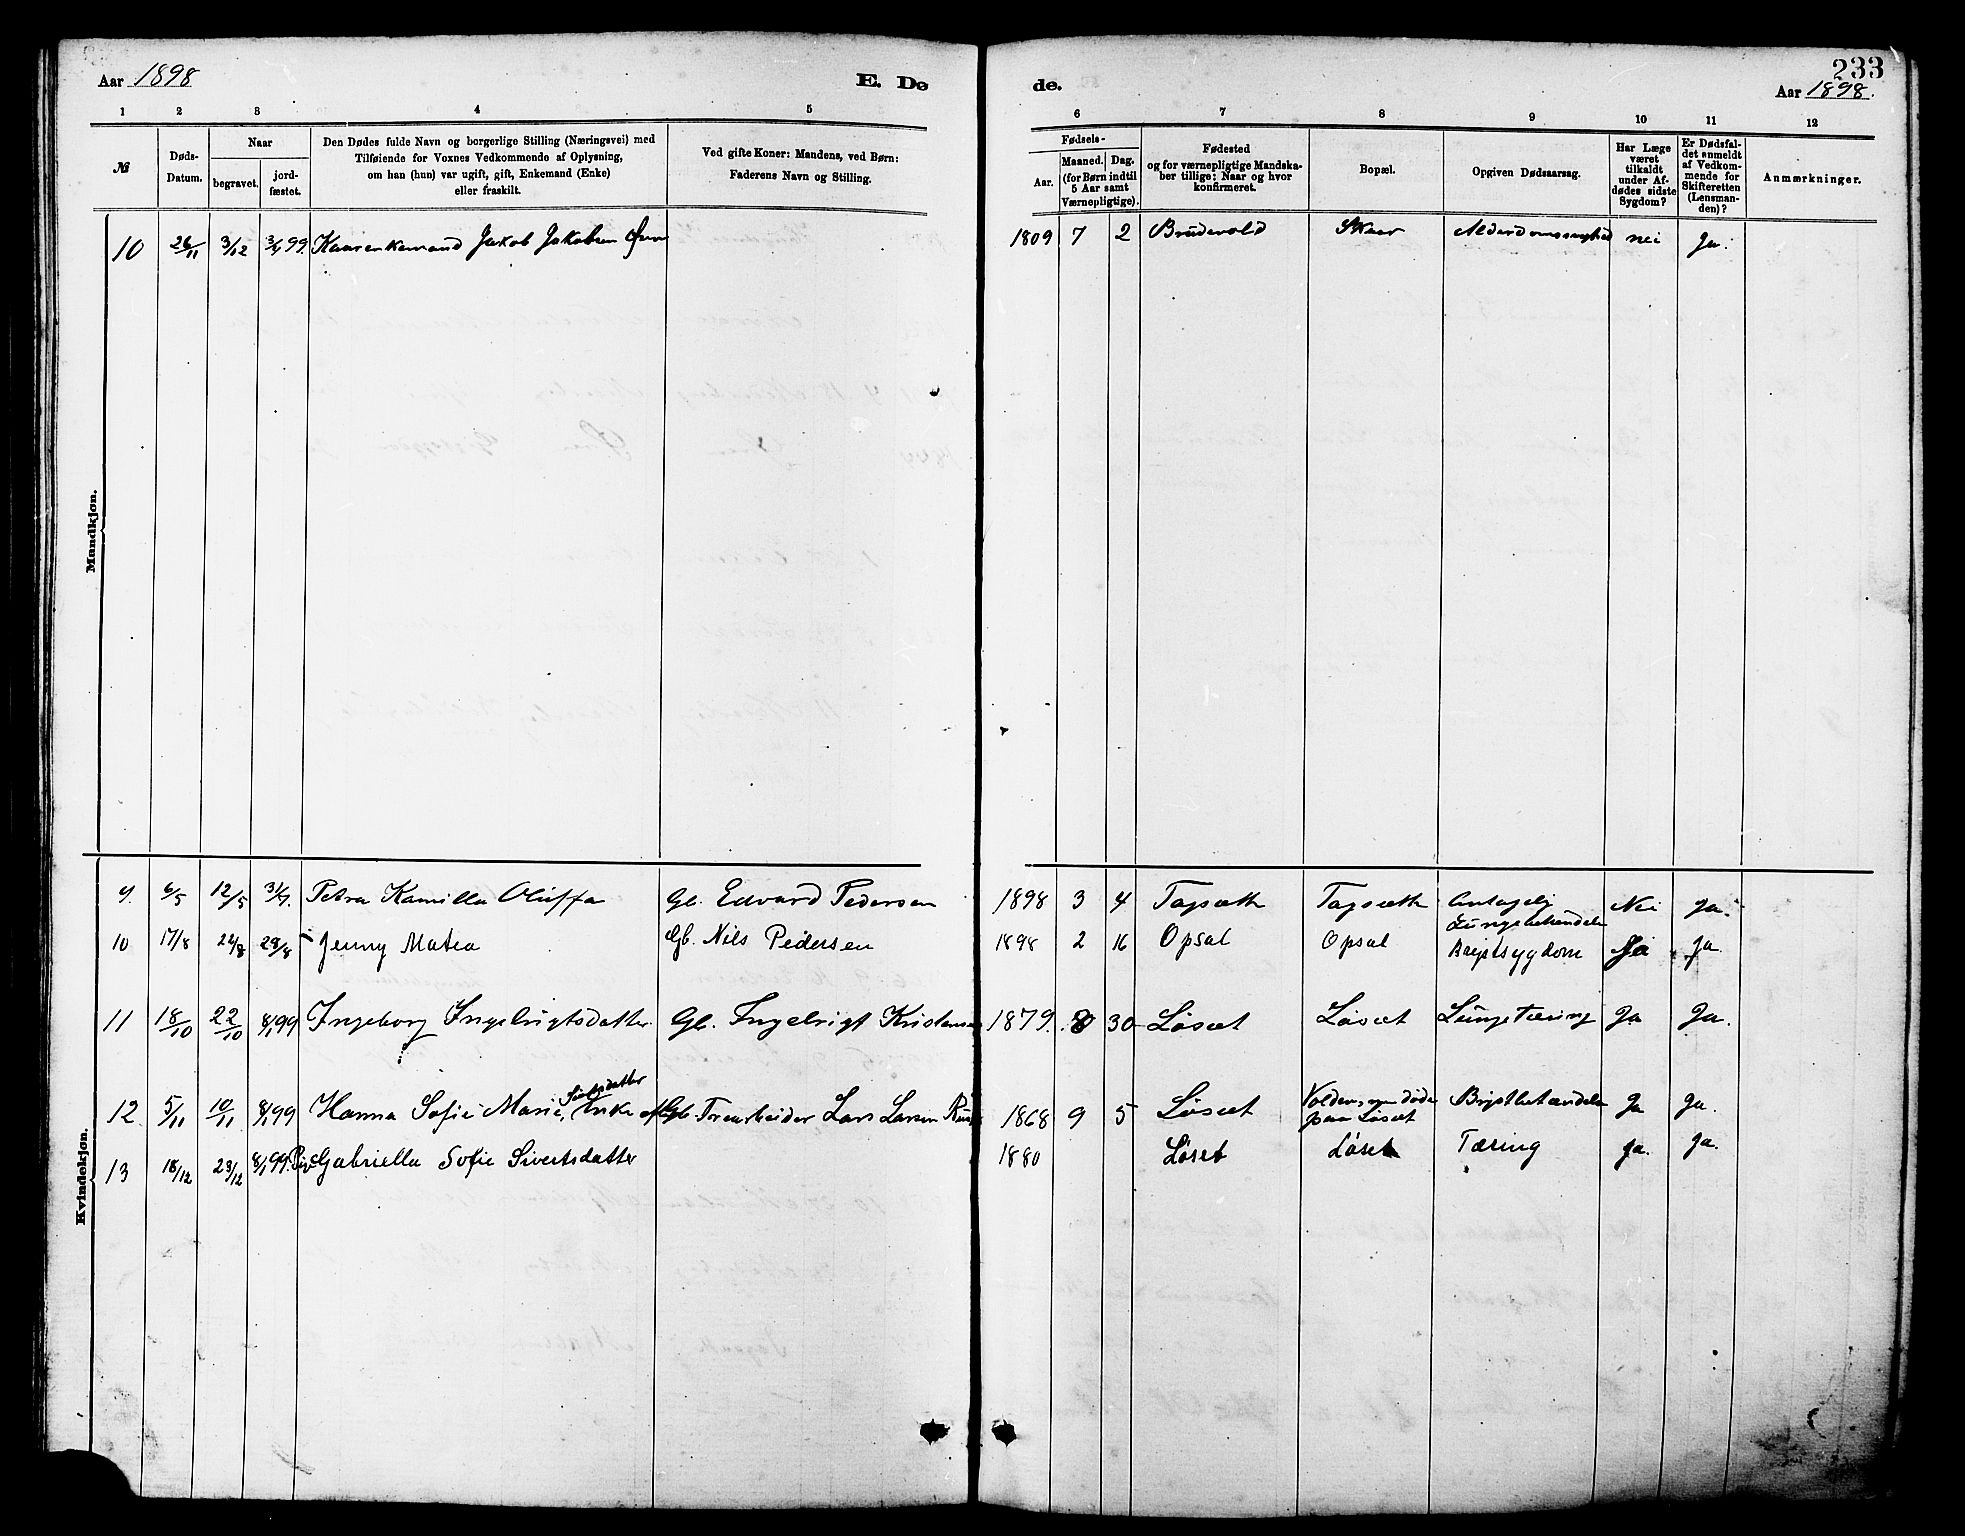 Aar 1898
E. Dø
de.
233
Aar 1898.
1 2 3 4 5 6 7 8 9 10 11 12
№
Døds-
Datum.
Naar
begravet.
jord-
fæstet.
Den Dødes fulde Navn og borgerlige Stilling (Næringsvei) med
Tilføiende for Voxnes Vedkommende af Oplysning,
om han (hun) var ugift, gift, Enkemand (Enke)
eller fraskilt.
Ved gifte Koner: Mandens, ved Børn:
Faderens Navn og Stilling.
Fødsels-
Aar.
Maaned. Dag.
(for Børn indtil
5 Aar samt
Værnepligtige).
Fødested
og for værnepligtige Mandska-
ber tillige: Naar og hvor
konfirmeret.
Bopæl.
Opgiven Dødsaarsag.
Har Læge
været
tilkaldt
under Af-
dødes sidste
Sygdom?
Er Dødsfal-
det anmeldt
af Vedkom-
mende for
Skifteretten
(Lensman-
den)?
Anmærkninger.
Mandkjøn.
10 26/11 3/12 99. Kaarenkemand Jakob Jakobsen 1809 7 2 Brudevold Skaar nei Ja.
Kvindekjøn.
9. 6/5 12/5 31/7. Petra Kamilla Oluffa Gb. Edvard Pedersen 1898 3 4 Tagsæth Tagsæth Antagelig Nei Ja.
Lungebetændelse
10 17/8 22/8 28/8 Jenny Matea Gb. Nils Pedersen 1898 2 16 Opsal Opsal Brystsygdom Ja Ja.
11 18/10 22/10 8/1 99 Ingeborg Ingebrigtsdatter Gb. Ingebrigt Kristensen 1879. 8 30 Løsæt Løsæt Lungetæring Ja Ja.
12. 5/11 10/11 8/1 99 Hanna Sofie Marie, Enke af Gb. Lars Larsen 1868 9 5 Løsæt Volden, som døde Brystbetændelse Ja Ja.
paa Løsæt
13 18/12 23/12 8/1 99. Pige Gabriella Sofie Sivertsdatter 1880 Løset Løset Tæring Ja. Ja.